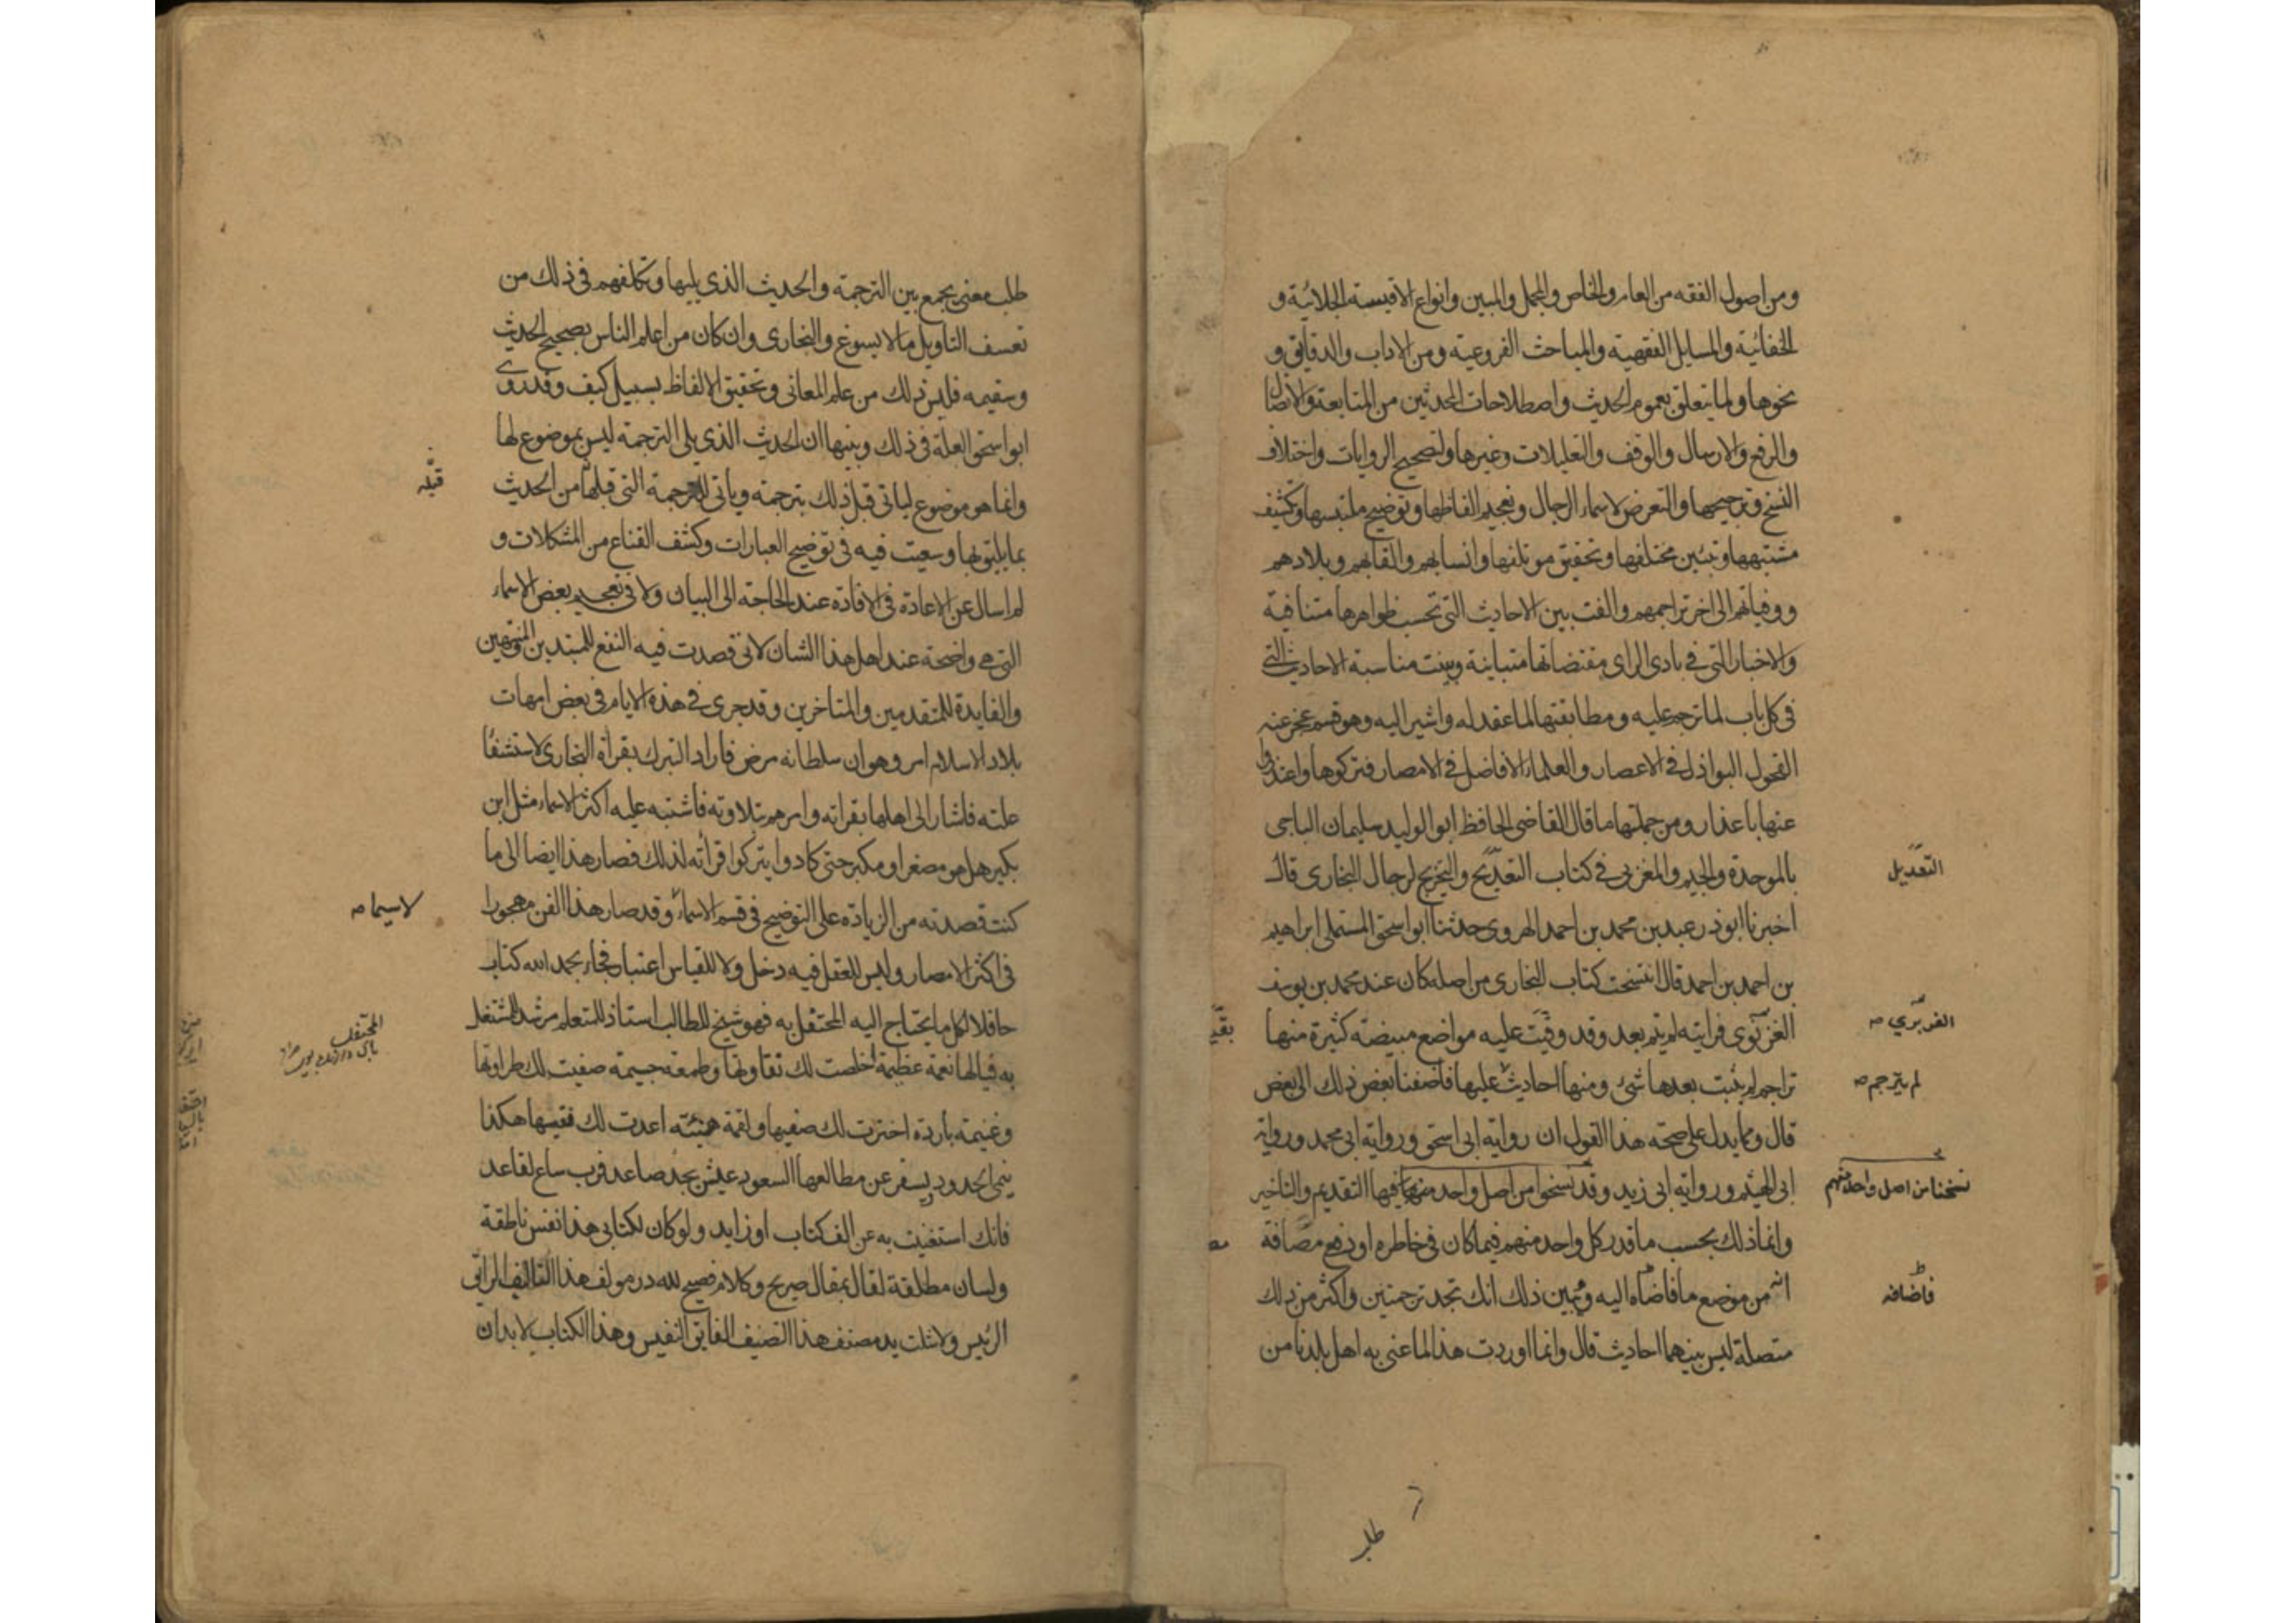 ومن اصول الفقه من العام والخاص والمجمل والمبين وانواع الاقيسة الجلائية و
الخفائية والمسايل الفقهية والمباحث الفروعية ومن الاداب والدقايق و
نحوها ولما يتعلق بعموم الحديث واصطلاحات المحدثين من المتابعة والاتصال
والرفع والارسال والوقف والتعليلات وغيرها ولتصحيح الروايات واختلاف
النسخ وترجيحها والتعرض لاسماء الرجال وتعجيم الفاظها وتوضيح ملتبسها وكشف
مشتبهها وتبيين مختلفها وتحقيق موتلفها وانسابهم والقابهم وبلادهم
ووفياتهم الى اخر تراجمهم والفت بين الاحاديث التي تحسب ظواهرها متنافية
والاخبار التي في بادى الراى مقتضاتها متباينة وبينت مناسبة الاحاديث التي
في كل باب لما ترجم عليه ومطابقتها لما عقد له واشير اليه وهو قسم عجز عنه
الفحول البوازل في الاعصار والعلماء الافاضل في الامصار فتركوها واعتذروا
عنها باعذار ومن جملتها ما قال القاضى الحافظ ابو الوليد سليمان الباجى
بالموحدة والجيم والمغربى في كتاب التعديح والتخريج لرجال البخارى قال
التعديل
اخبرنا ابو ذر عبد بن محمد بن احمد الهروى حدثنا ابو اسحق المستملى ابراهيم
بن احمد بن احمد قال انتسخت كتاب البخارى من اصله كان عند محمد بن يوسف
الغزنوى فرايته لم يتم بعد وقد وقيت عليه مواضع مبيضة كثيرة منها
الفربري صه
بقيت
تراجم لم يثبت بعدها شئ ومنها احاديث عليها فاضفنا بعض ذلك الى بعض
لم يترجم صه
قال ومما يدل على صحة هذا القول ان رواية ابى اسحق ورواية ابى محمد ورواية
ابى الهيثم ورواية ابى زيد وقد نسخوا من اصل واحد منهما فيها التقديم والتاخير
نسخنا من اصل واحد منهم
وانما ذلك بحسب ما قدر كل واحد منهم فيما كان في خاطره او رفع مضافة
انه من موضع ما فاضاه اليه ويبين ذلك انك تجد ترجمتين واكثر من ذلك
فاضافه
متصلة ليس بينهما احاديث قال وانما اوردت هذا لما عنى به اهل بلدنا من
طلب
طلب معنى يجمع بين الترجمة والحديث الذي يليها وتكلفهم في ذلك من
تعسف التاويل ما لا يسوغ والبخارى وان كان من اعلم الناس بصحيح الحديث
وسقيمه فليس ذلك من علم المعانى وتحقيق الالفاظ بسبيل كيف وقد روى
ابو اسحق العلة في ذلك وبينها ان الحديث الذي يلى الترجمة ليس بموضوع لها
وانما هو موضوع لياتى قبل ذلك بترجمته وياتى للترجمة التى قبلها من الحديث
قبله
بما يليق بها وسعيت فيه في توضيح العبارات وكشف القناع من المشكلات و
لم اسال عن الاعادة في الافادة عند الحاجة الى البيان ولا في تعجيم بعض الاسماء
التى هي واضحة عند اهل هذا الشان لانى قصدت فيه النفع للمبتدين والمنتهين
والفايدة للمتقدمين والمتاخرين وقد جرى في هذه الايام في بعض امهات
بلاد الاسلام امر وهو ان سلطانه مرض فاراد التبرك بقراة البخارى لاستشفا
علته فاشار الى اهلها بقراته وامرهم بتلاوته فاشتبه عليه اكثر الاسماء مثل ابن
بكير هل هو مصغر او مكبر حتى كادوا يتركوا قرأته لذلك فصار هذا ايضا الى ما
كنت قصدته من الزيادة على التوضيح في قسم الاسماء وقد صار هذا الفن مهجورا
لاسيما صه
في اكثر الامصار وليس للعقل فيه دخل ولا للقياس اعتبار فجاء بحمد الله كتاب
حافلا لكل ما يحتاج اليه المحتفل به فهو شيخ للطالب استاذ للمتعلم مرشد للمشتغل
المحتفل
به فيالها نعمة عظيمة اخلصت لك نقاوتها وطعمة جسيمة صفيت لك طراوتها
وغنيمة باردة اختزت لك صفيها ولقمة هنيئة اعدت لك فقيسها هكذا
ينمى الحدود ويسفر عن مطالعها السعود عيش بجد صاعد فرب ساع لقاعد
فانك استغنيت به عن الف كتاب او زايد ولو كان لكتابى هذا نفس ناطقة
ولسان مطلقة لقال بمقال صريح وكلام فصيح لله در مولف هذا التاليف الرائق
الرئيس ولا شلت يد مصنف هذا التصنيف الفايق النفيس وهذا الكتاب لا بد ان